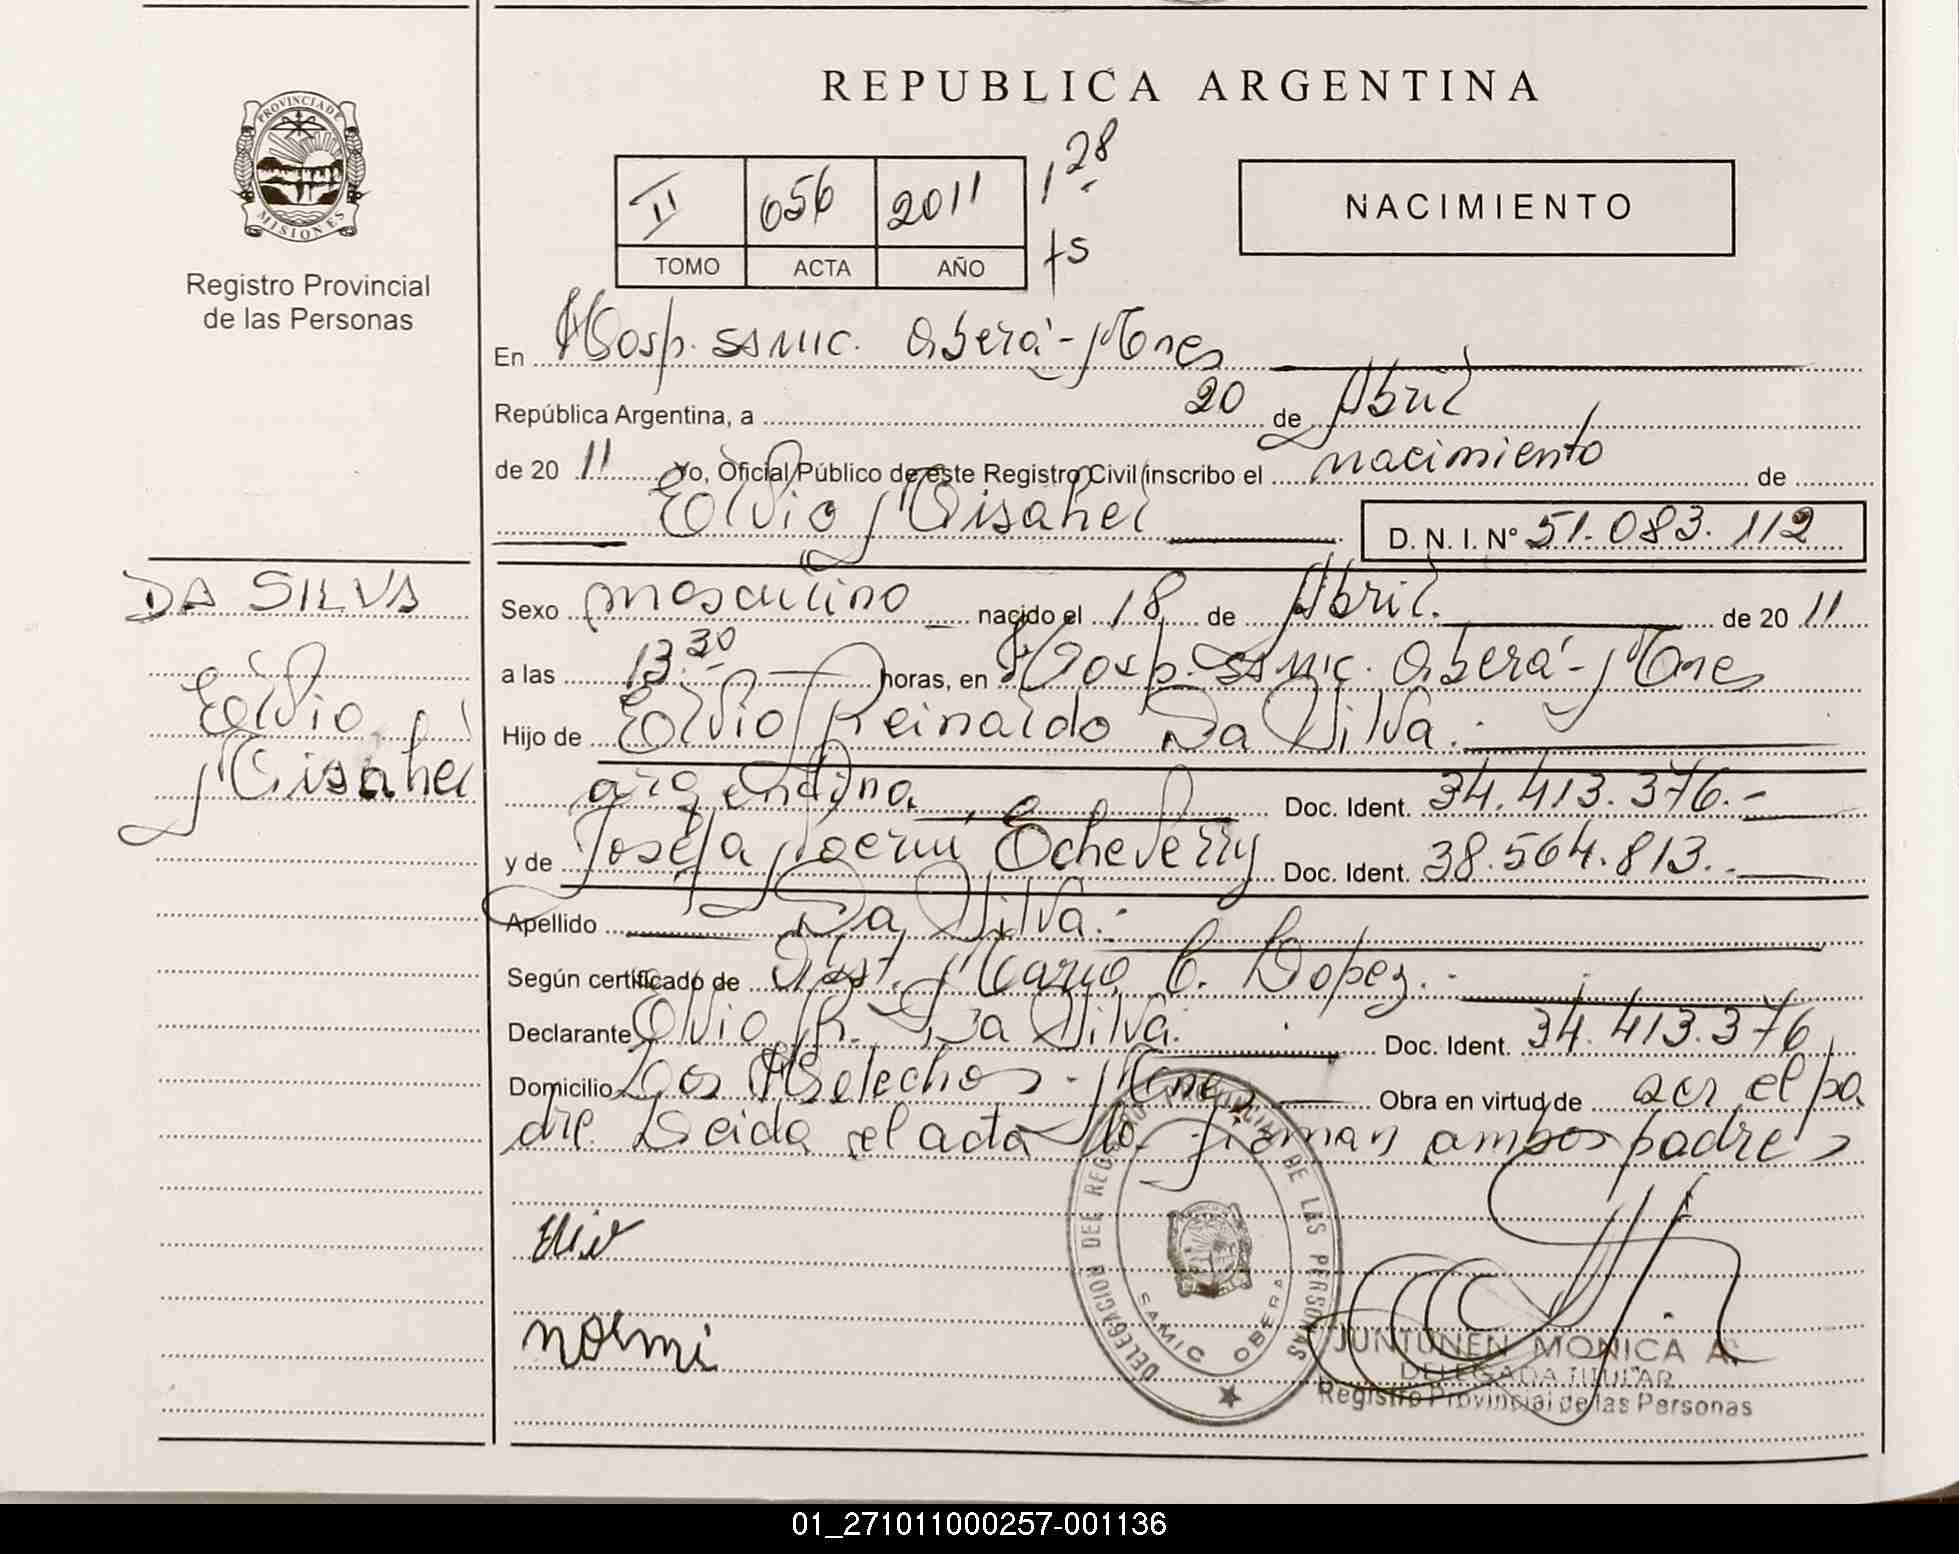 REPUBLICA ARGENTINA
PROVINCIA DE MISIONES
Registro Provincial
de las Personas
II 056 2011 1 28 fs
TOMO ACTA AÑO
NACIMIENTO
En Hosp. SAMIC. Oberá - Mnes
República Argentina, a 20 de Abril
de 20 11 Yo, Oficial Público de este Registro Civil inscribo el nacimiento de
Elvio Misahel D. N. I. Nº 51.083.112
DA SILVA
Elvio
Misahel
Sexo masculino nacido el 18 de Abril. de 20 11
a las 13.30 horas, en Hosp. SAMIC. Oberá - Mnes
Hijo de Elvio Reinaldo Da Silva.
argentina Doc. Ident. 34.413.376.-
y de Josefa Noemi Echeverry Doc. Ident. 38.564.813.-
Apellido Da Silva.-
Según certificado de Obst. Mario C. Lopez.-
Declarante Elvio R. Da Silva. Doc. Ident. 34.413.376
Domicilio Los Helechos - Mnes Obra en virtud de ser el pa
dre. Leida el acta la firman ambos padres
Noemi
DELEGACION DEL REGISTRO PROVINCIAL DE LAS PERSONAS
SAMIC OBERA
JUNTUNEN MONICA A.
DELEGADA TITULAR
Registro Provincial de las Personas
01_271011000257-001136